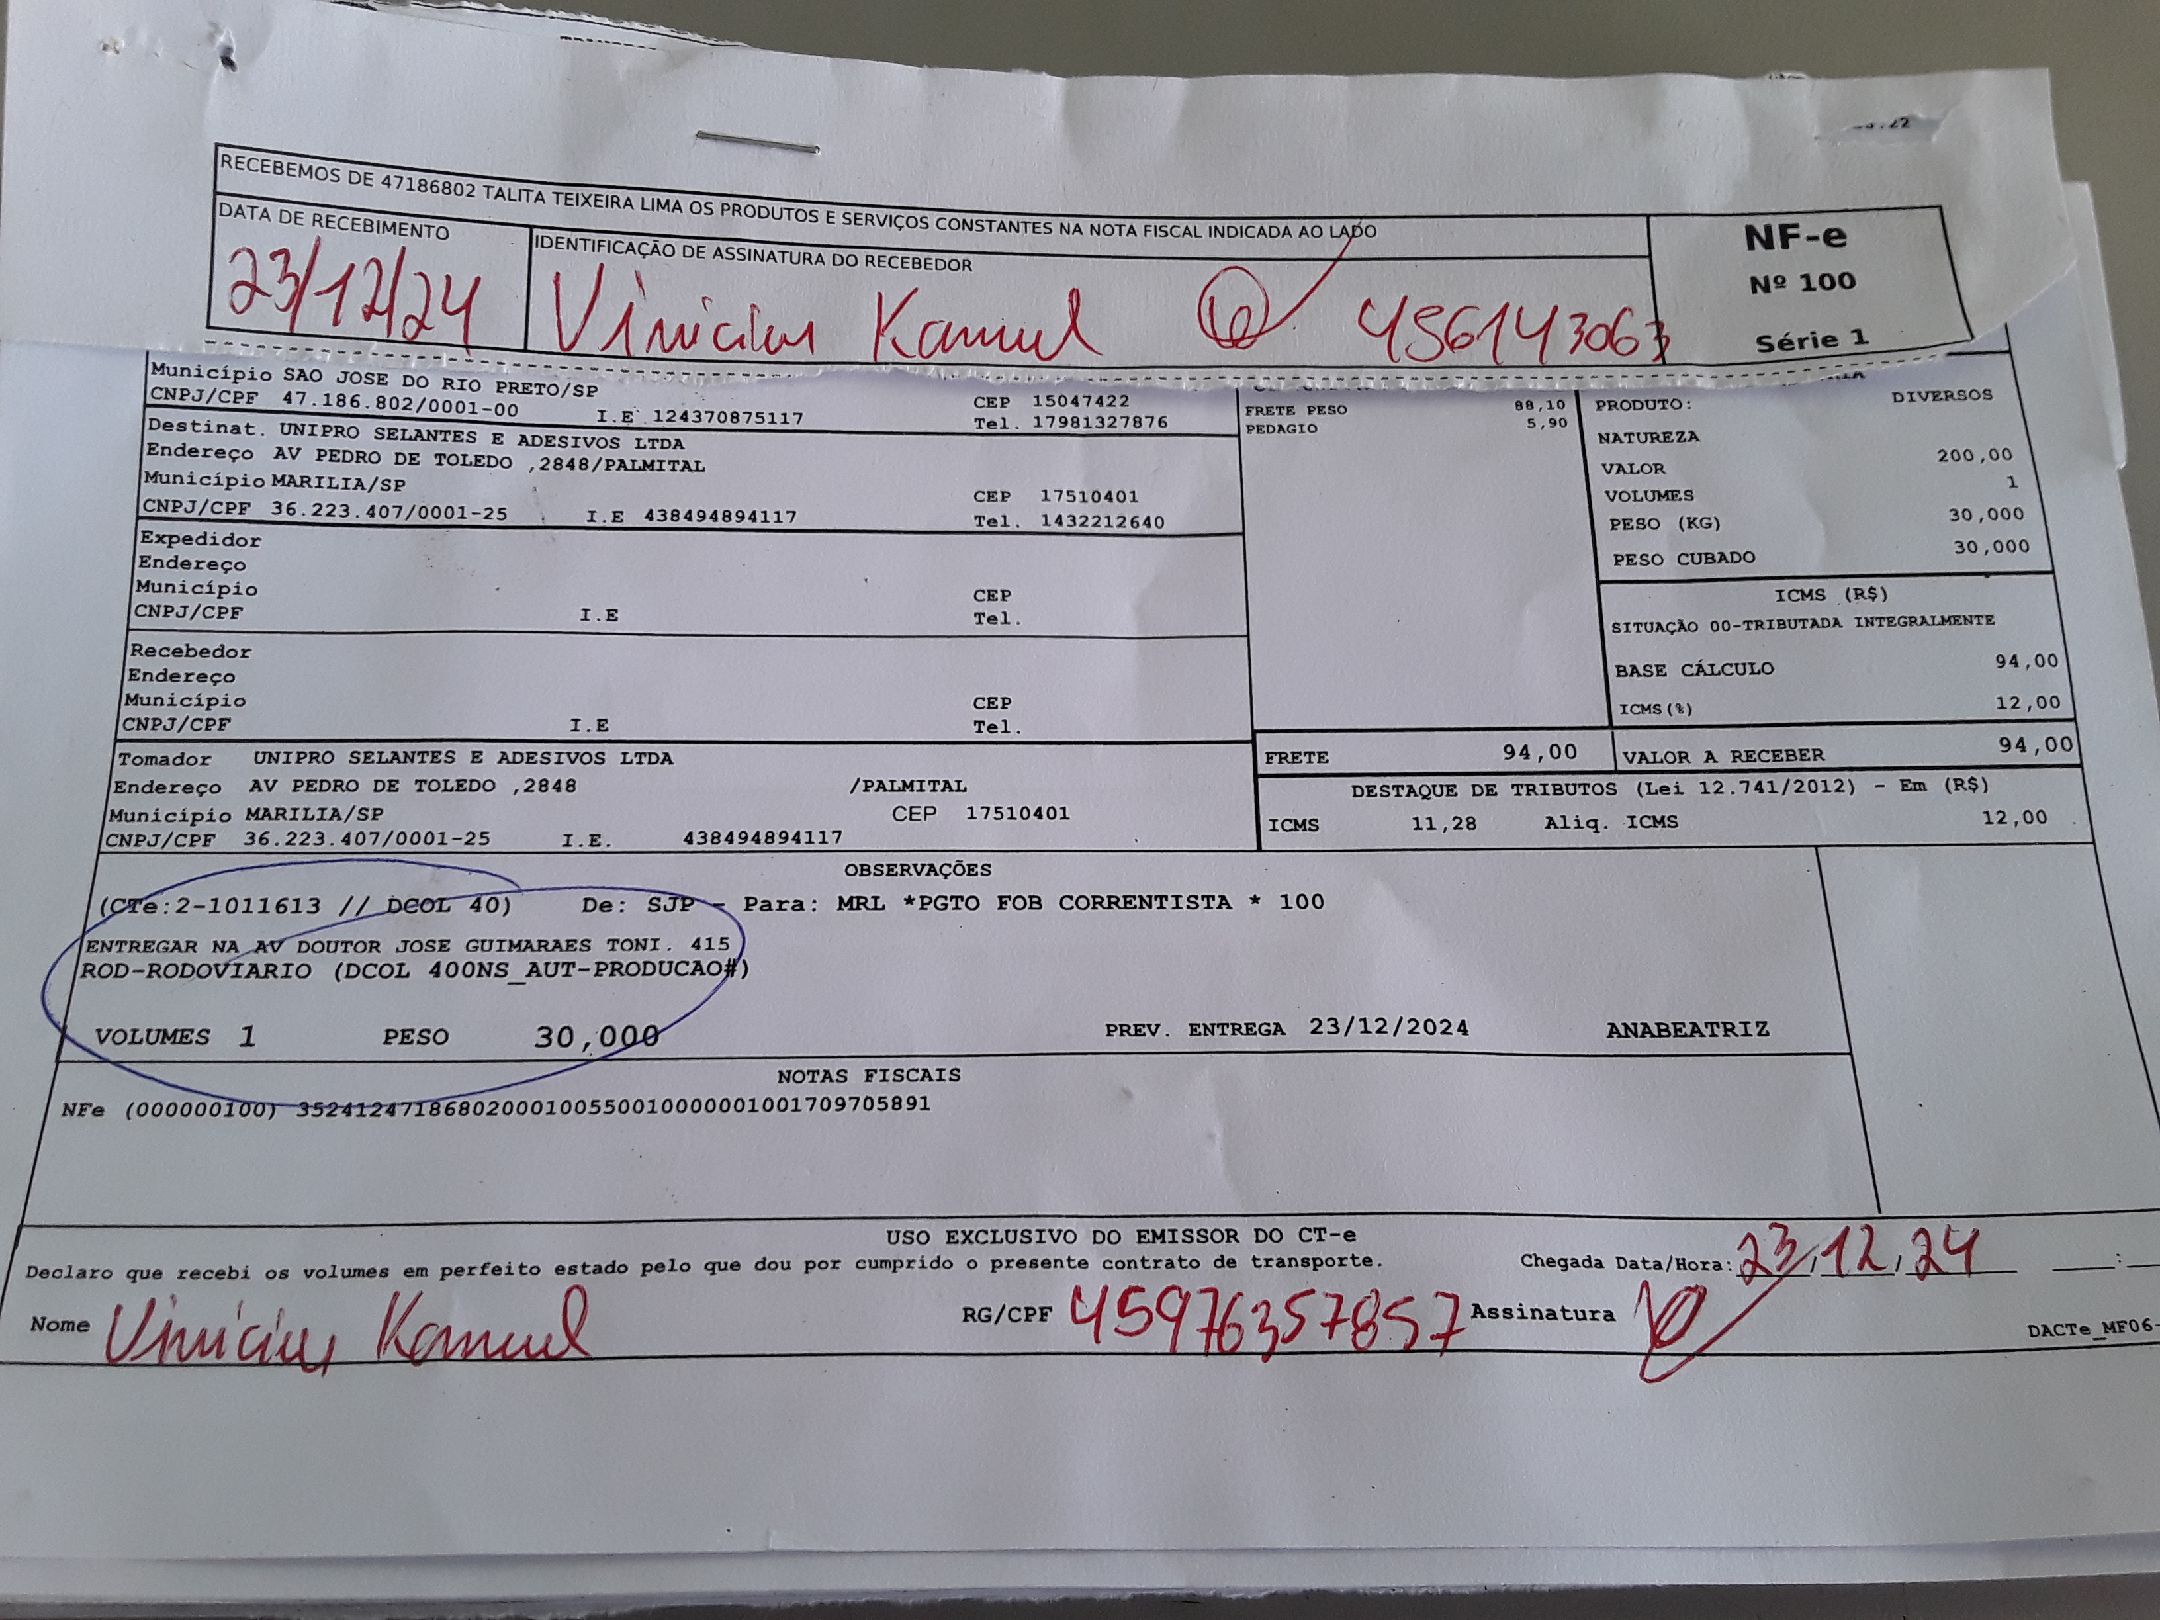 RECEBEMOS DE 47186802 TALITA TEIXEIRA LIMA OS PRODUTOS E SERVIÇOS CONSTANTES NA NOTA FISCAL INDICADA AO LADO
DATA DE RECEBIMENTO
23/12/24
IDENTIFICAÇÃO DE ASSINATURA DO RECEBEDOR
Vinicius 456143063
NF-e
Nº 100
Série 1
Município SAO JOSE DO RIO PRETO/SP
CNPJ/CPF 47.186.802/0001-00 I.E 124370875117
CEP 15047422
Tel. 17981327876
Destinat. UNIPRO SELANTES E ADESIVOS LTDA
Endereço AV PEDRO DE TOLEDO ,2848/PALMITAL
Município MARILIA/SP CEP 17510401
CNPJ/CPF 36.223.407/0001-25 I.E 438494894117 Tel. 1432212640
Expedidor
Endereço
Município CEP
CNPJ/CPF I.E Tel.
Recebedor
Endereço
Município CEP
CNPJ/CPF I.E Tel.
Tomador UNIPRO SELANTES E ADESIVOS LTDA
Endereço AV PEDRO DE TOLEDO ,2848 /PALMITAL
Município MARILIA/SP CEP 17510401
CNPJ/CPF 36.223.407/0001-25 I.E. 438494894117
FRETE PESO 88,10
PEDAGIO 5,90
PRODUTO: DIVERSOS
NATUREZA
VALOR 200,00
VOLUMES 1
PESO (KG) 30,000
PESO CUBADO 30,000
ICMS (R$)
SITUAÇÃO 00-TRIBUTADA INTEGRALMENTE
BASE CÁLCULO 94,00
ICMS(%) 12,00
FRETE 94,00 VALOR A RECEBER 94,00
DESTAQUE DE TRIBUTOS (Lei 12.741/2012) - Em (R$)
ICMS 11,28 Aliq. ICMS 12,00
OBSERVAÇÕES
(CTe:2-1011613 // DCOL 40) De: SJP - Para: MRL *PGTO FOB CORRENTISTA * 100
ENTREGAR NA AV DOUTOR JOSE GUIMARAES TONI. 415
ROD-RODOVIARIO (DCOL 400NS_AUT-PRODUCAO#)
VOLUMES 1 PESO 30,000 PREV. ENTREGA 23/12/2024 ANABEATRIZ
NOTAS FISCAIS
NFe (000000100) 35241247186802000100550010000001001709705891
USO EXCLUSIVO DO EMISSOR DO CT-e
Declaro que recebi os volumes em perfeito estado pelo que dou por cumprido o presente contrato de transporte. Chegada Data/Hora: 23/12/24 :
Nome Vinicius RG/CPF 45976357857 Assinatura
DACTe_MF06-